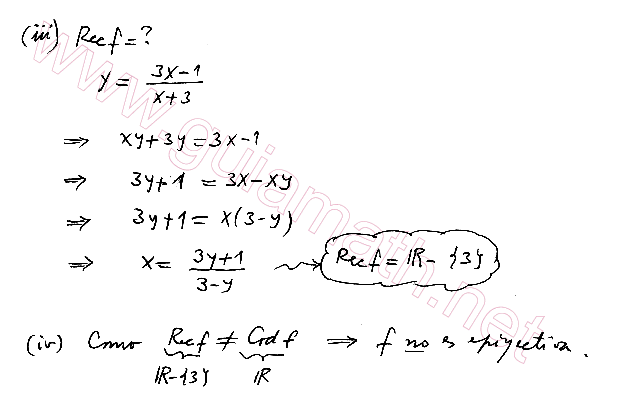 (iii) Rec f = ?
y = \frac{3x-1}{x+3}
⇒ xy+3y = 3x-1
⇒ 3y+1 = 3x-xy
⇒ 3y+1 = x(3-y)
⇒ x = \frac{3y+1}{3-y} ⟿ Rec f = IR - {3}
(iv) Como \underbrace{Rec f}_{IR-{3}} ≠ \underbrace{Cod f}_{IR} ⇒ f no es epiyectiva.
www.guiamath.net